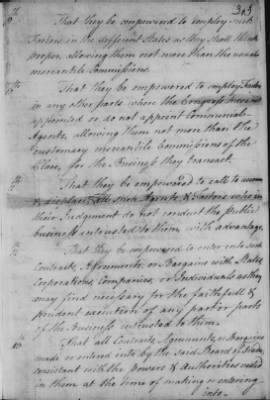 305
That they be empowered to employ such
Factors in the different States as they shall think
proper, allowing them not more than the usual
mercantile Commissions.
That they be empowered to employ Factors
in any other parts where the Congress have
appointed or do not appoint Commercial
Agents, allowing them not more than the
Customary mercantile Commissions of the
Place, for the Business they transact.
That they be empowered to
Agents & Factors who in
their Judgment do not conduct the public
business intrusted to them with advantage.
That they be empowered to enter into such
Contracts, Agreements, or Bargains with States,
Corporations, Companies, or Individuals as they
may find necessary for the faithfull &
prudent execution of any part or parts
of the Business intrusted to them.
That all Contracts, Agreements, or Bargains
made or entered into by the said Board of Trade,
consistent with the powers & authorities
in them at the time of making or entering
into